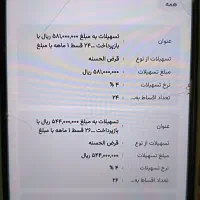 همه
عنوان
تسهیلات به مبلغ ۵۸۱,۰۰۰,۰۰۰ ریال با
بازپرداخت ...۲۴ قسط ۱ ماهه با مبلغ
تسهیلات از نوع : قرض الحسنه
مبلغ تسهیلات : ۵۸۱,۰۰۰,۰۰۰ ریال
نرخ تسهیلات : ۴ %
تعداد اقساط به... : ۲۴
عنوان
تسهیلات به مبلغ ۵۴۴,۰۰۰,۰۰۰ ریال با
بازپرداخت ...۲۶ قسط ۱ ماهه با مبلغ
تسهیلات از نوع : قرض الحسنه
مبلغ تسهیلات : ۵۴۴,۰۰۰,۰۰۰ ریال
نرخ تسهیلات : ۴ %
تعداد اقساط به... : ۲۶